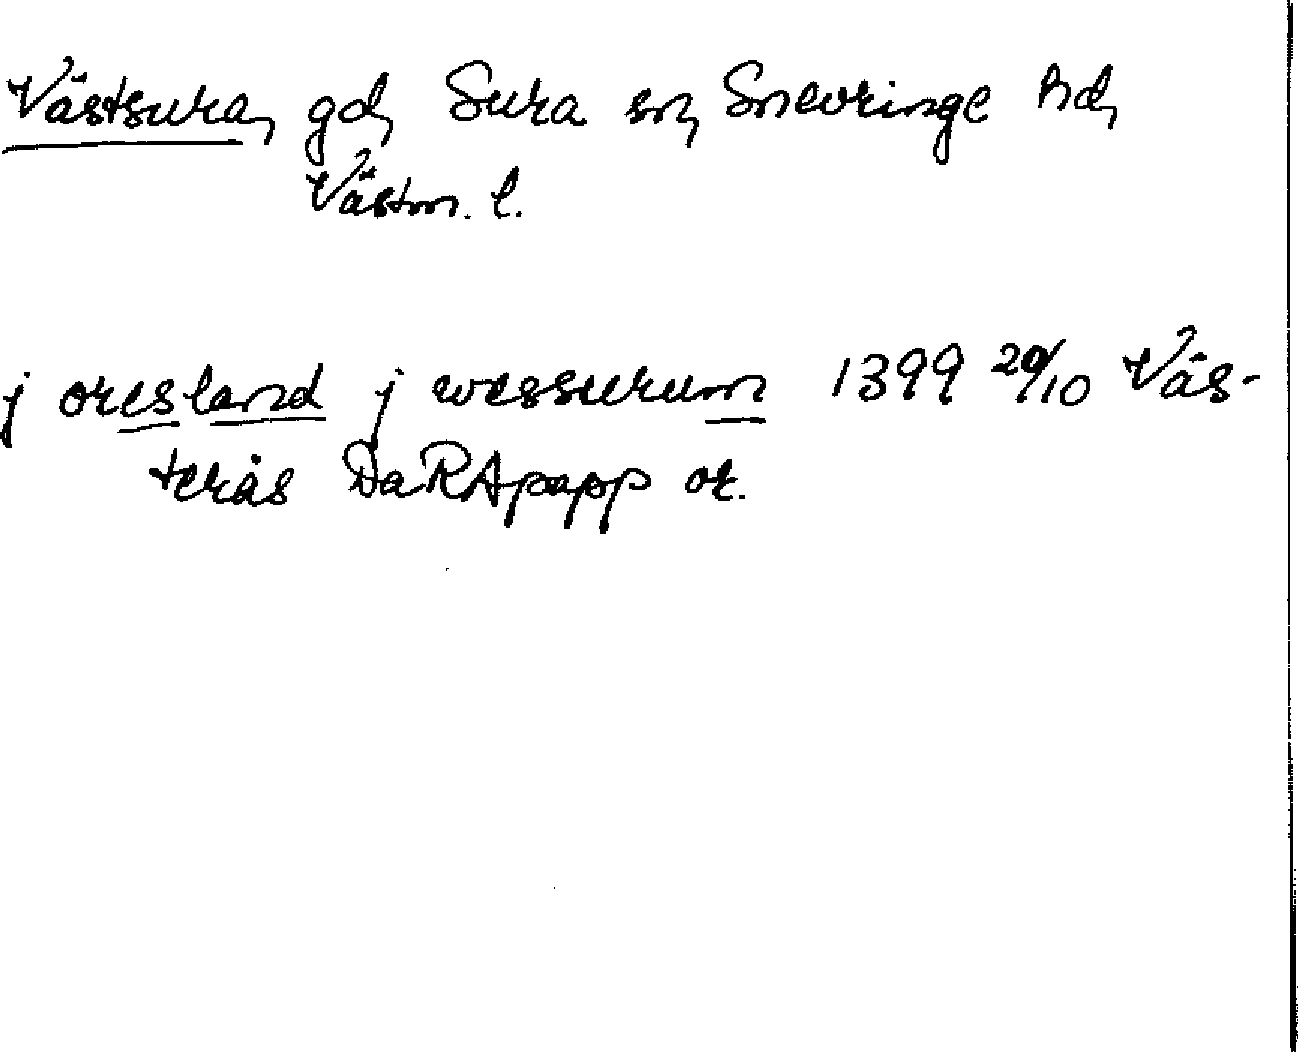 Västsura, gd, Sura sn, Snevringe hd,
Västm. l.
j øresland j wessurum 1399 20/10 Väs-
terås DaRApapp or.